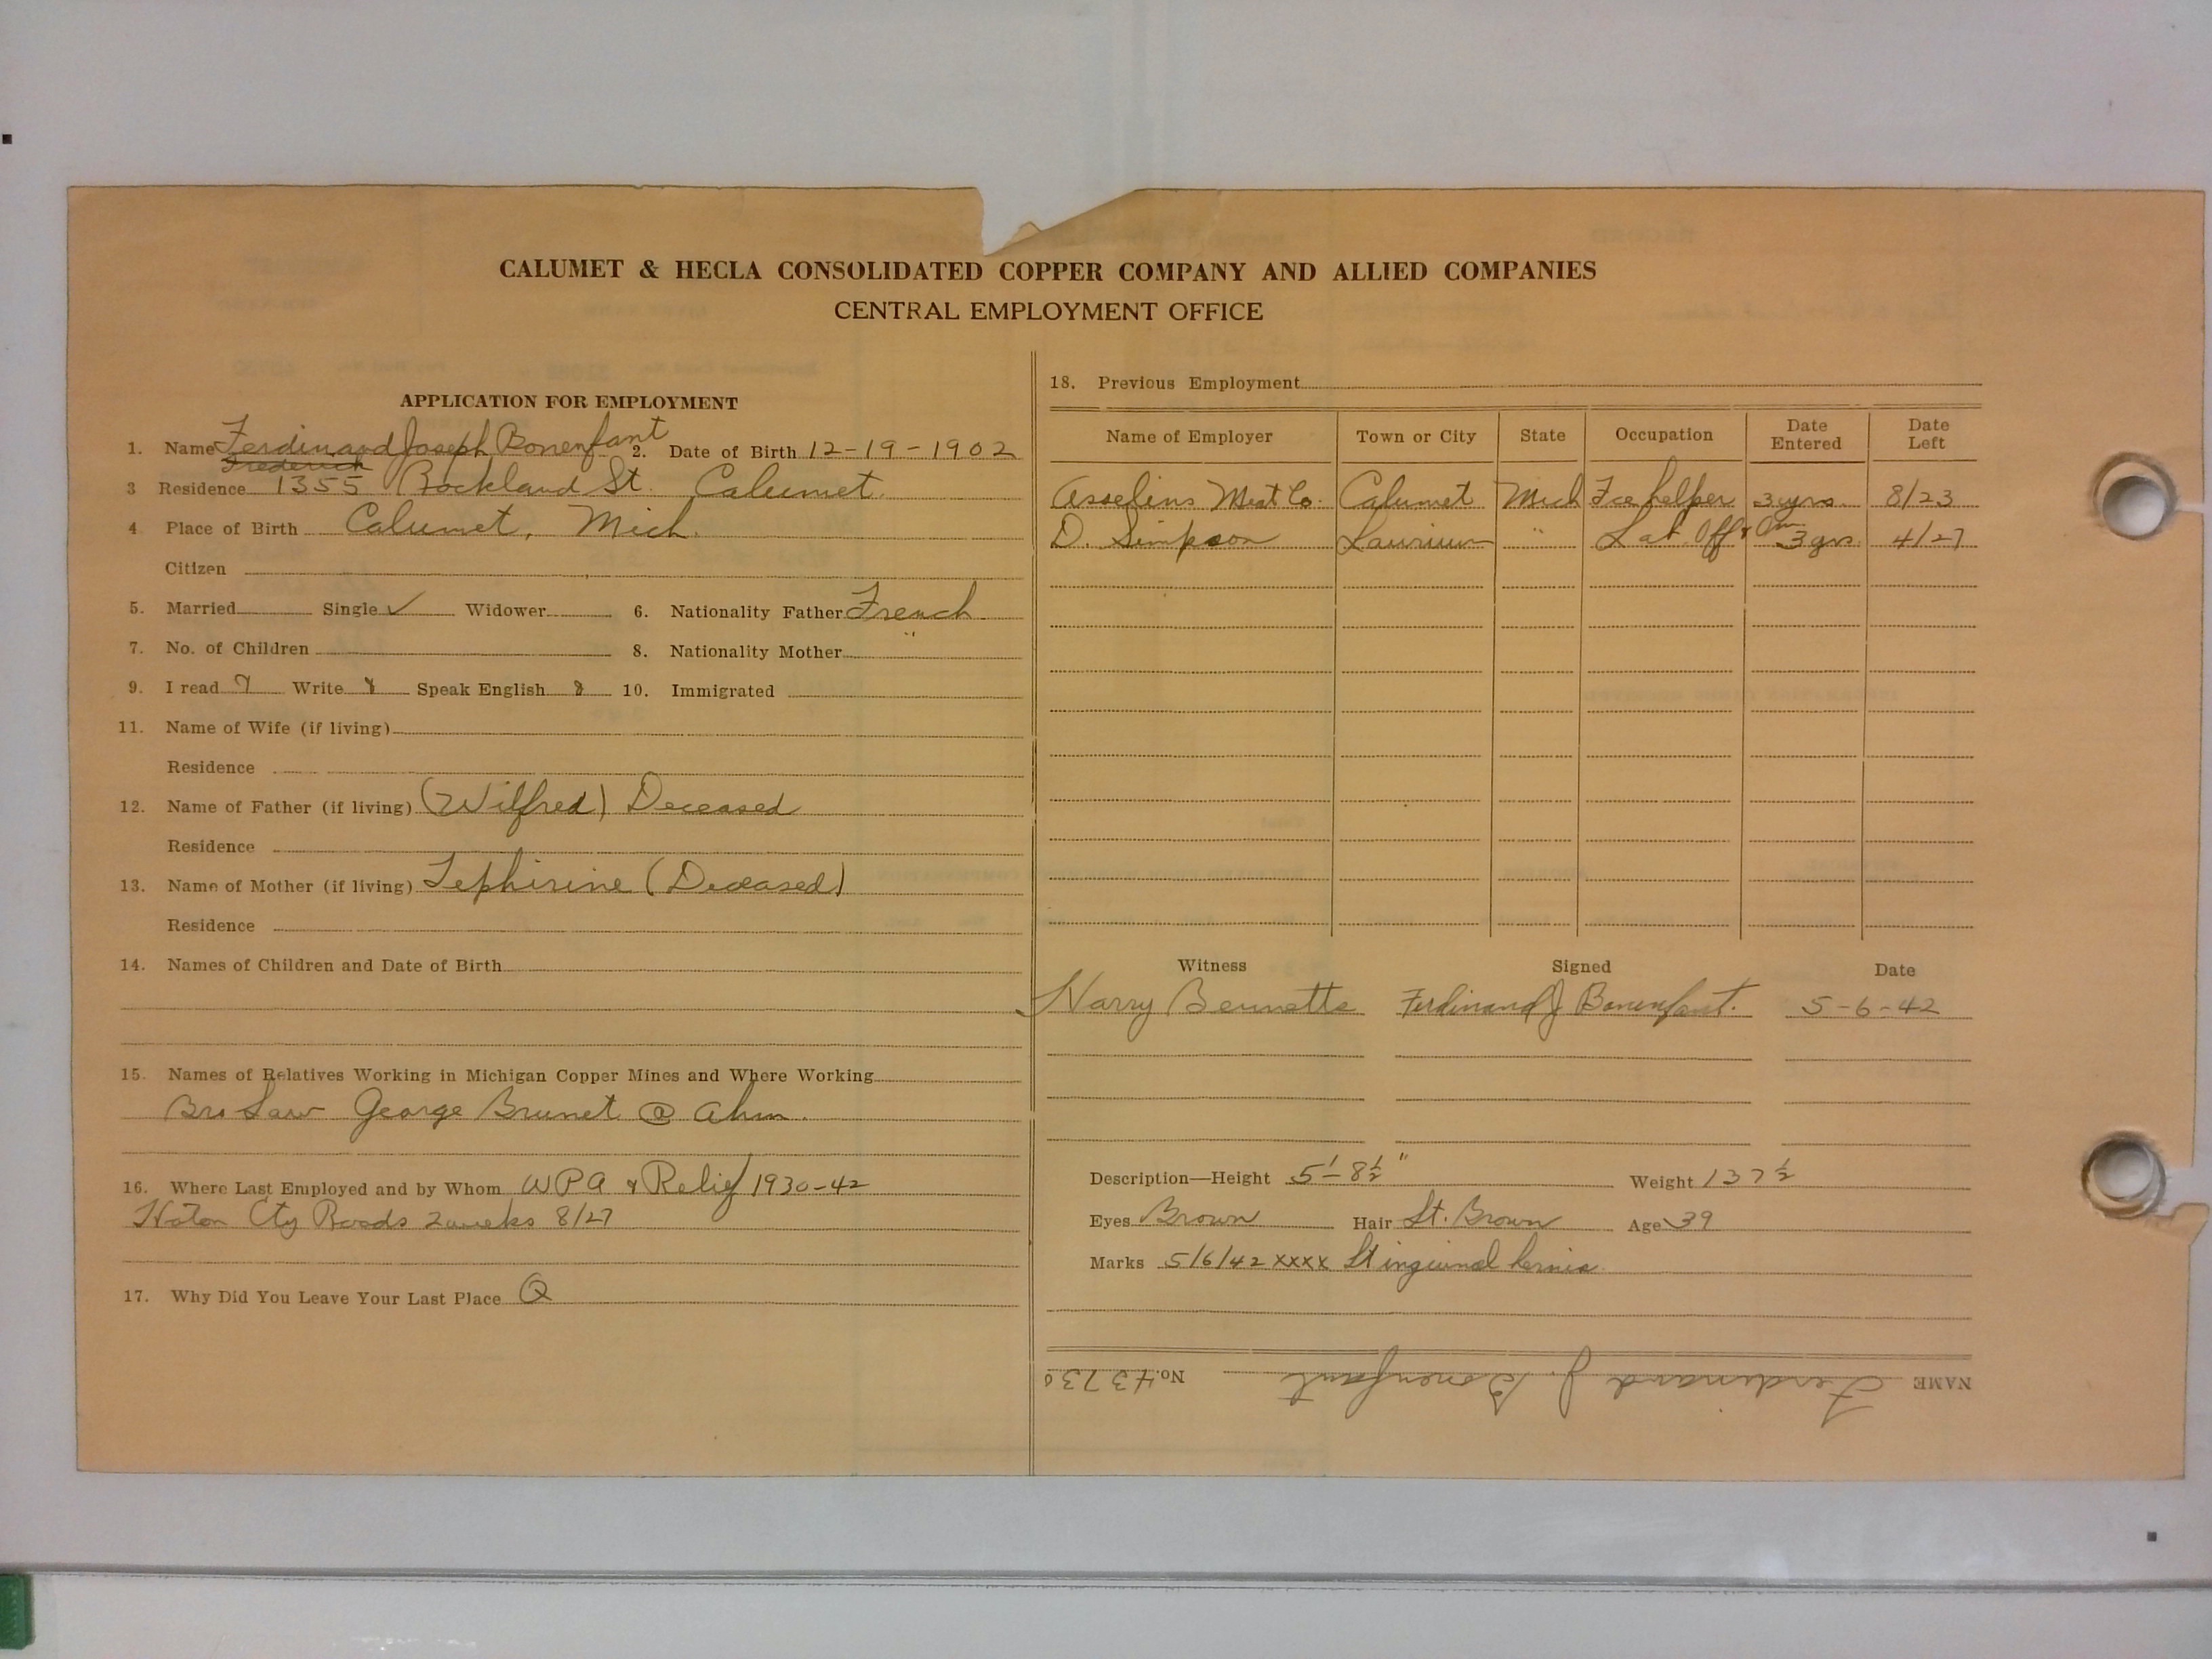 CALUMET & HECLA CONSOLIDATED COPPER COMPANY AND ALLIED COMPANIES
CENTRAL EMPLOYMENT OFFICE
APPLICATION FOR EMPLOYMENT
1. Name Ferdinand Joseph Bonenfant 2. Date of Birth 12-19-1902
Frederick
3 Residence 1355 Rockland St. Calumet
4. Place of Birth Calumet, Mich.
Citizen
5. Married Single ✓ Widower 6. Nationality Father French
7. No. of Children 8. Nationality Mother "
9. I read Write Speak English 10. Immigrated
11. Name of Wife (if living)
Residence
12. Name of Father (if living) (Wilfred) Deceased
Residence
13. Name of Mother (if living) (Deceased)
Residence
14. Names of Children and Date of Birth
15. Names of Relatives Working in Michigan Copper Mines and Where Working
Bro Law George Brunet @ Ahm.
16. Where Last Employed and by Whom WPA & Relief 1930-42
Hoton Cty Roads 2 weeks 8/27
17. Why Did You Leave Your Last Place Q
18. Previous Employment
Name of Employer Town or City State Occupation Date Entered Date Left
Asselins Meat Co. Calumet Mich Ice helper 3 yrs. 8/23
D. Simpson Laurium " Lab. Off & 3 yrs. 4/27
Witness Signed Date
Harry Bennetts Ferdinand J Bonenfant. 5-6-42
Description—Height 5'-8½" Weight 137½
Eyes Brown Hair Lt. Brown Age 39
Marks 5/6/42 xxxx Lt inguinal hernia.
NAME Ferdinand J. Bonenfant No. 43730